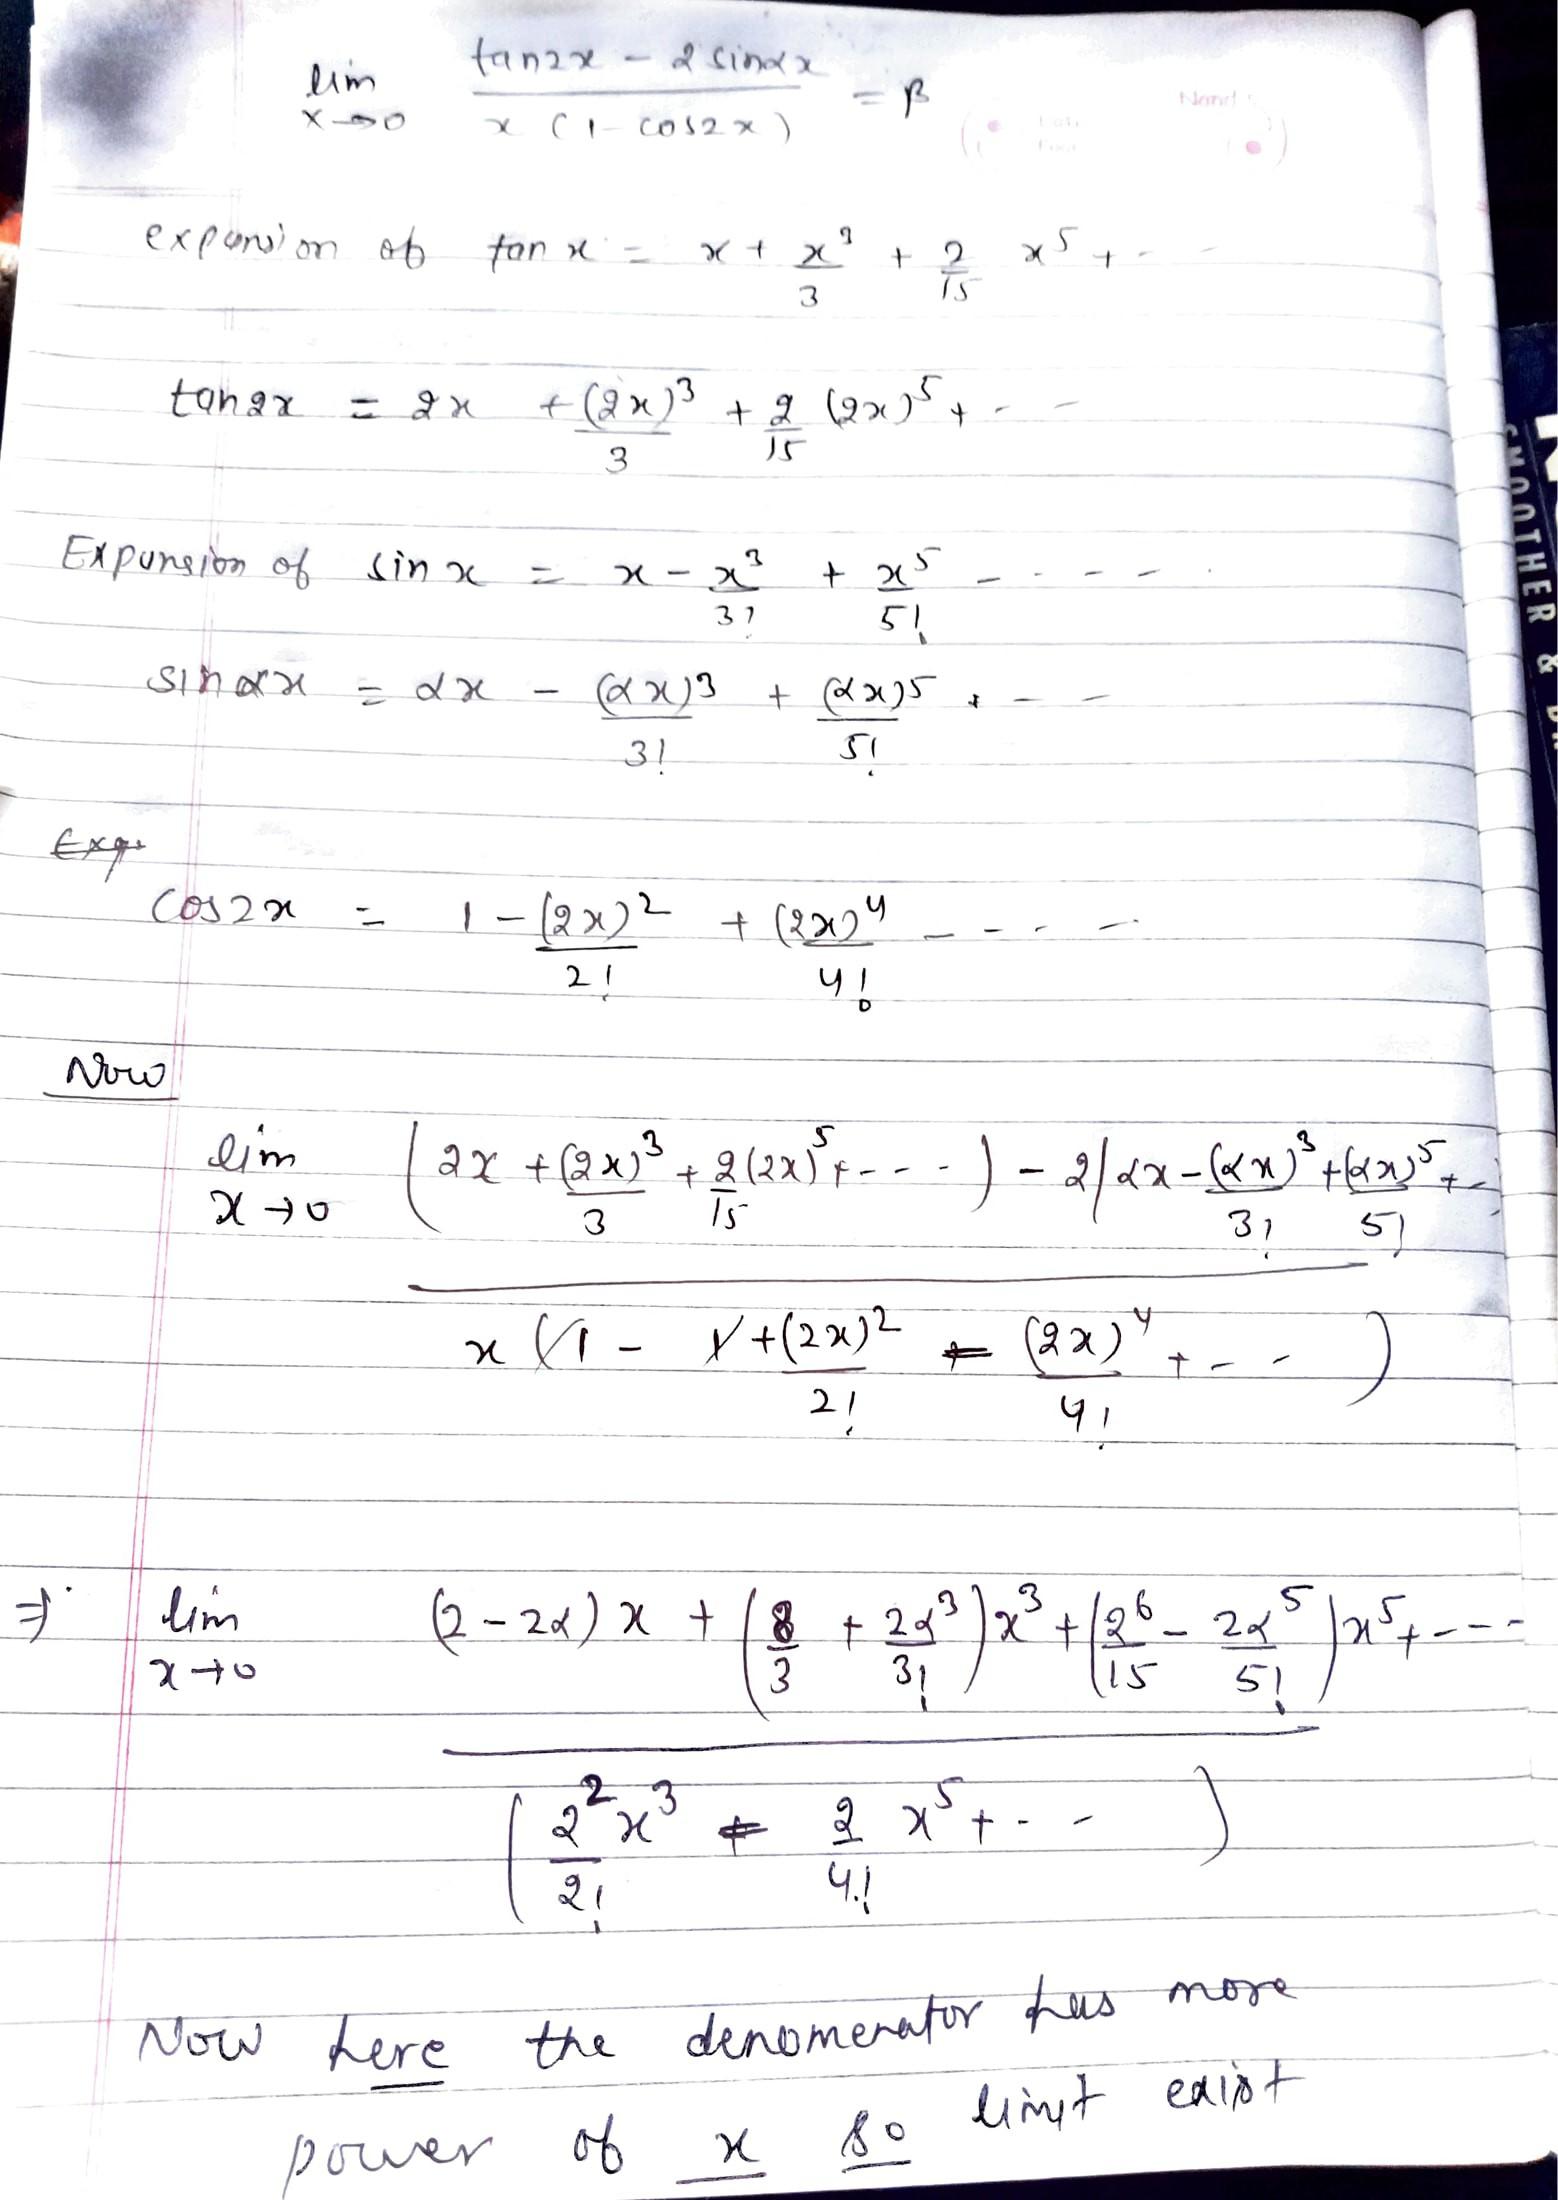 lim x→0 (tan2x - 2 sinαx) / (x (1 - cos2x)) = β
expansion of tan x = x + x³/3 + 2/15 x⁵ + - -
tan2x = 2x + (2x)³/3 + 2/15 (2x)⁵ + - -
Expansion of sin x = x - x³/3! + x⁵/5! - - - -
sin αx = αx - (αx)³/3! + (αx)⁵/5! + - -
Exp
cos2x = 1 - (2x)²/2! + (2x)⁴/4! - - - -
Now
lim x→0 ((2x + (2x)³/3 + 2/15 (2x)⁵ + - - -) - 2(αx - (αx)³/3! + (αx)⁵/5! + -)) / (x (1 - 1 + (2x)²/2! - (2x)⁴/4! + - -))
⇒ lim x→0 ((2 - 2α) x + (8/3 + 2α³/3!) x³ + (2⁶/15 - 2α⁵/5!) x⁵ + - - -) / (2²x³/2! - 2/4! x⁵ + - -)
Now here the denomenator has more
power of x so limit exist
SMOOTHER &